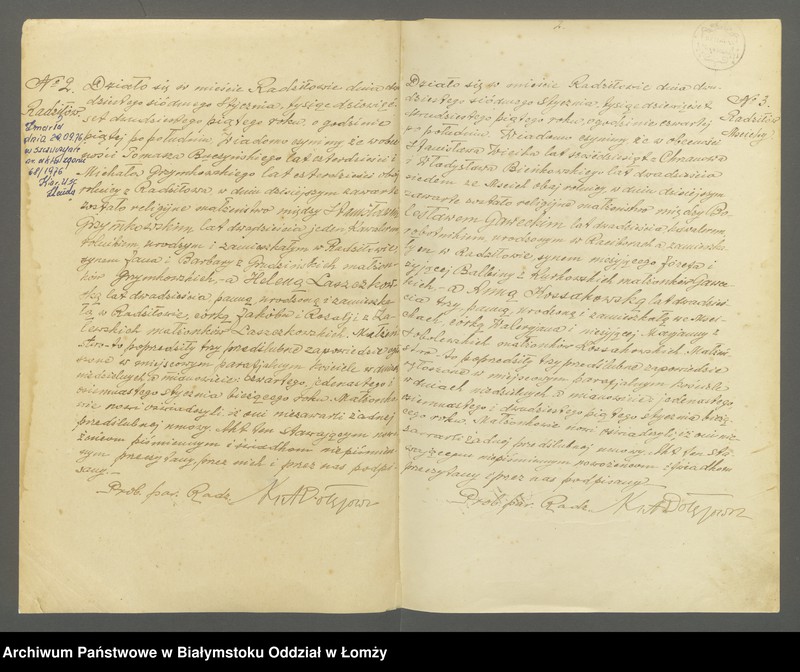 Nº 2.
Radziłów.
Zmarła
dnia 24.09.76
w Szczuczynie
nr aktu zgonu
68/1976
Działo się w mieście Radziłowie dnia dwu-
dziestego siódmego stycznia, tysiąc dziewięć-
set dwudziestego piątego roku, o godzinie
piątej po południu. Wiadomo czynimy że w obec-
ności Tomasza lat czterdzieści i
Michała Grzymkowskiego lat czterdzieści obaj
rolnicy z Radziłowa w dniu dzisiejszym zawarte
zostało religijne małżeństwo między Stanisławem
Grzymkowskim, lat dwadzieścia jeden kawalerem,
rolnikiem urodzonym i zamieszkałym w Radziłowie,
synem Jana i Barbary z małżon-
ków Grzymkowskich,- a Heleną Laszczkow-
ską lat dwadzieścia panną, urodzoną i zamieszka-
łą w Radziłowie, córką Jakóba i Rozalji z Za-
lewskich małżonków Laszczkowskich. Małżeń-
stwo to poprzedziły trzy przedślubne zapowiedzie ogło-
szone w miejscowym parafjalnym kościele w dniach
niedzielnych a mianowicie: czwartego, jedenastego i
ośmnastego stycznia bieżącego roku. Małżonko-
wie nowi oświadczyli, iż oni niezawarli żadnej
przedślubnej umowy. Akt ten stawającym nowo-
żeńcom piśmiennym i świadkom niepiśmien-
nym przeczytany, przez nich i przez nas podpi-
sany.-
Prob. par. Radz. Ks A Dołęgowsk
Nº 3.
Radziłów
Mścichy
Działo się w mieście Radziłowie dnia dwu-
dziestego siódmego stycznia, tysiąc dziewięćset
dwudziestego piątego roku, o godzinie czwartej
po południu. Wiadomo czynimy że w obecności
Stanisława lat sześćdziesiąt z
i Władysława Bieńkowskiego lat dwadzieścia
siedem ze Mścich obaj rolnicy, w dniu dzisiejszym
zawarte zostało religijne małżeństwo między Bo-
lesławem Gaweckim lat dwadzieścia kawalerem,
robotnikiem, urodzonym w i zamieszka-
łym w Radziłowie, synem nieżyjącego Józefa i
żyjącej Balbiny z małżonków Gawec-
kich,- a Anną Kossakowską lat dwadzieś-
cia trzy, panną, urodzoną i zamieszkałą we Mści-
chach, córką Walerjana i nieżyjącej Marjanny z
małżonków Kossakowskich. Małżeń-
stwo to poprzedziły trzy przedślubne zapowiedzie
ogłoszone w miejscowym parafjalnym kościele
w dniach niedzielnych, a mianowicie: jedenastego,
ośmnastego i dwudziestego piątego stycznia bieżą-
cego roku. Małżonkowie nowi oświadczyli, iż oni nie-
zawarli żadnej przedślubnej umowy. Akt ten sta-
wającym niepiśmiennym nowożeńcom i świadkom
przeczytany i przez nas podpisany.-
Prob. par. Radz. Ks A Dołęgowsk
Archiwum Państwowe w Białymstoku Oddział w Łomży